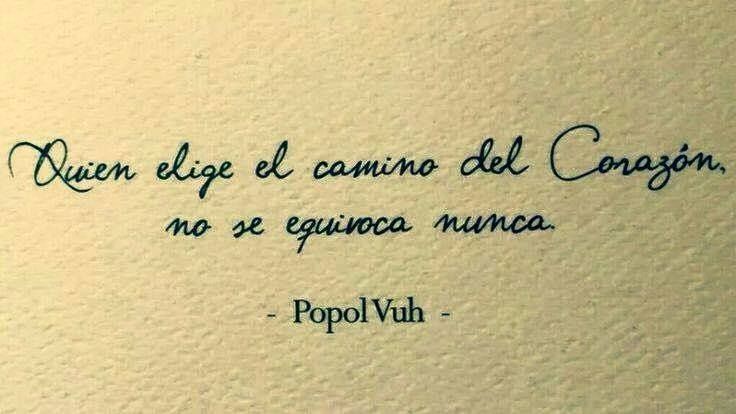 Quien elige el camino del Corazón,
no se equivoca nunca.
- Popol Vuh -